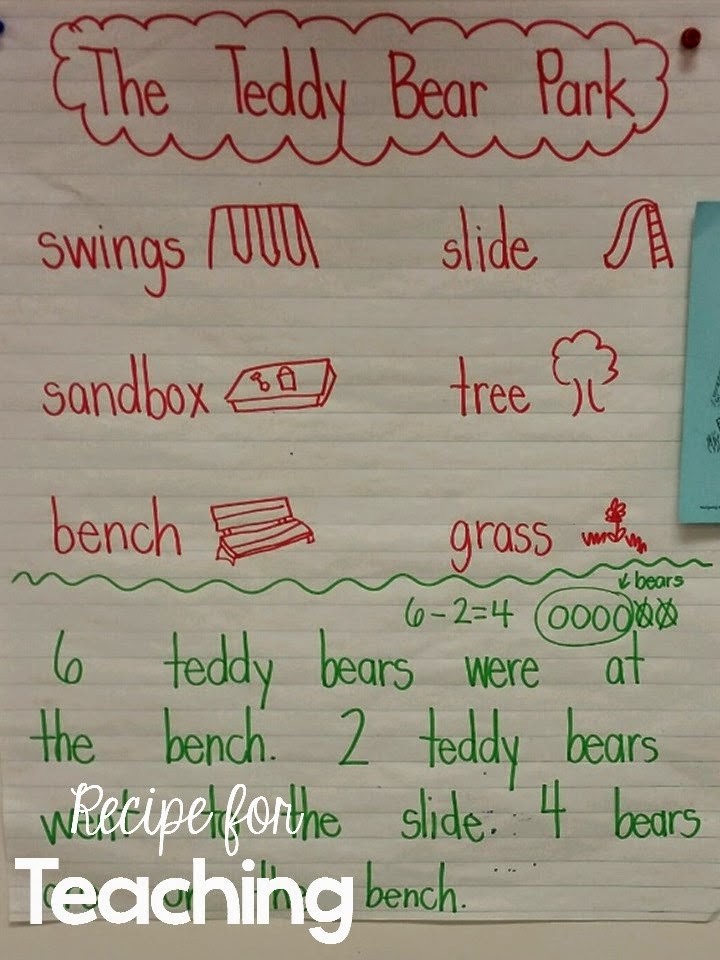 The Teddy Bear Park
swings slide
sandbox tree
bench grass
bears
6-2=4
6 teddy bears were at
the bench. 2 teddy bears
went to the slide. 4 bears
are on the bench.
Recipe for
Teaching